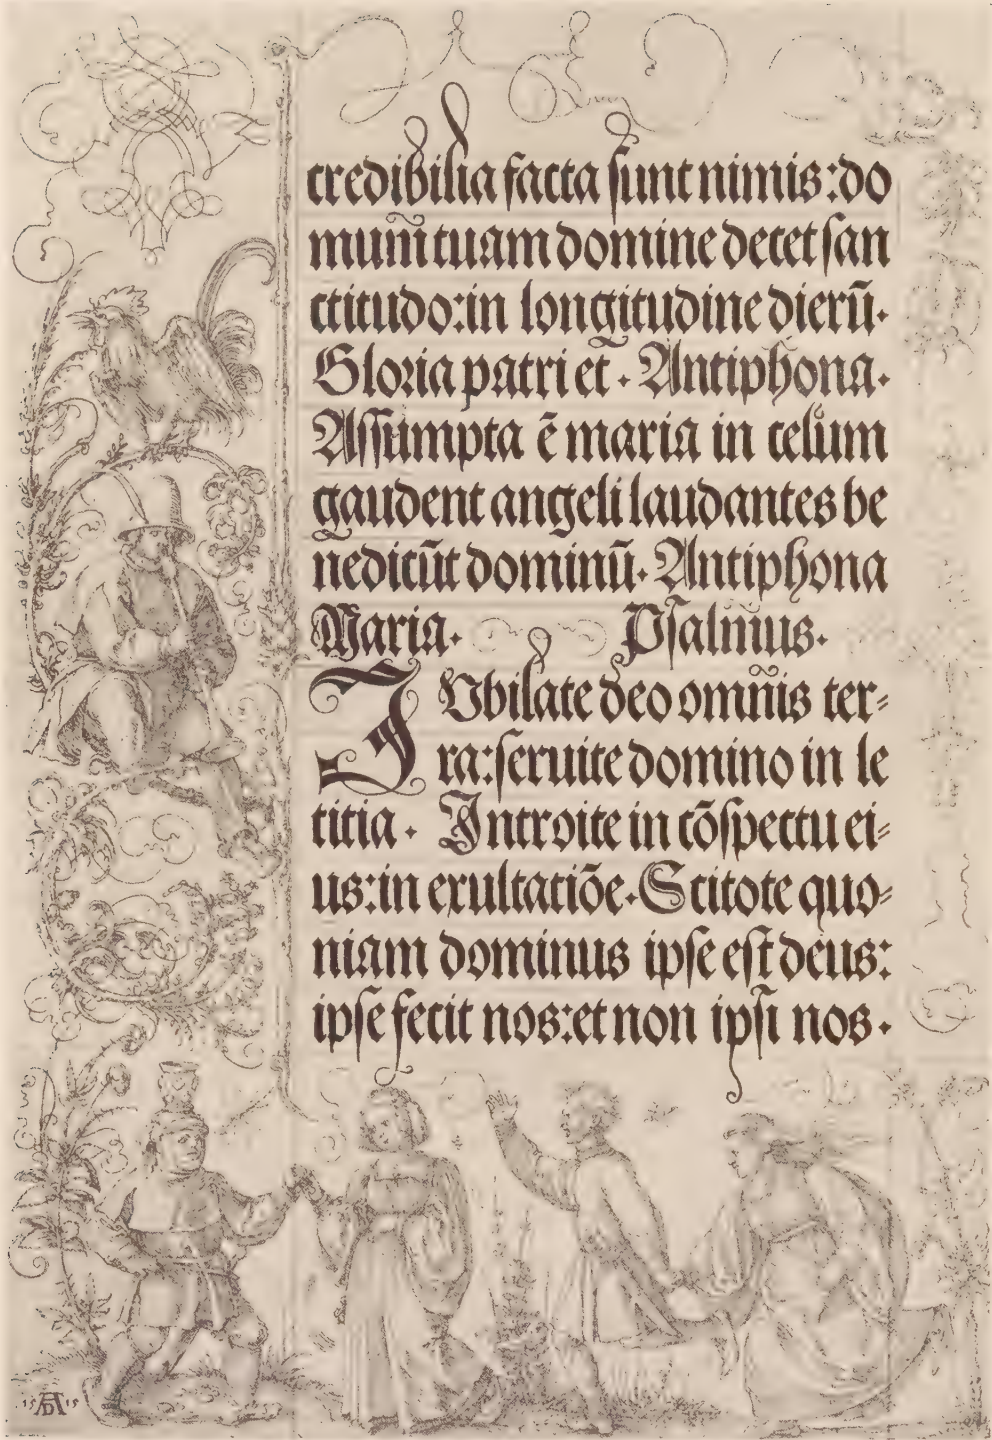 credibilia facta sunt nimis: do
mum̃ tuam domine decet san
ctitudo: in longitudine dierū.
Gloria patri et. Antiphona.
Assumpta ē maria in celum
gaudent angeli laudantes be
nedicūt dominū. Antiphona
Maria. Psalmus.
IVbilate deo omñis ter⸗
ra: seruite domino in le
titia. Introite in cōspectu ei⸗
us: in exultatiōe. Scitote quo⸗
niam dominus ipse est deus:
ipse fecit nos: et non ipsi nos.
15 AD 15